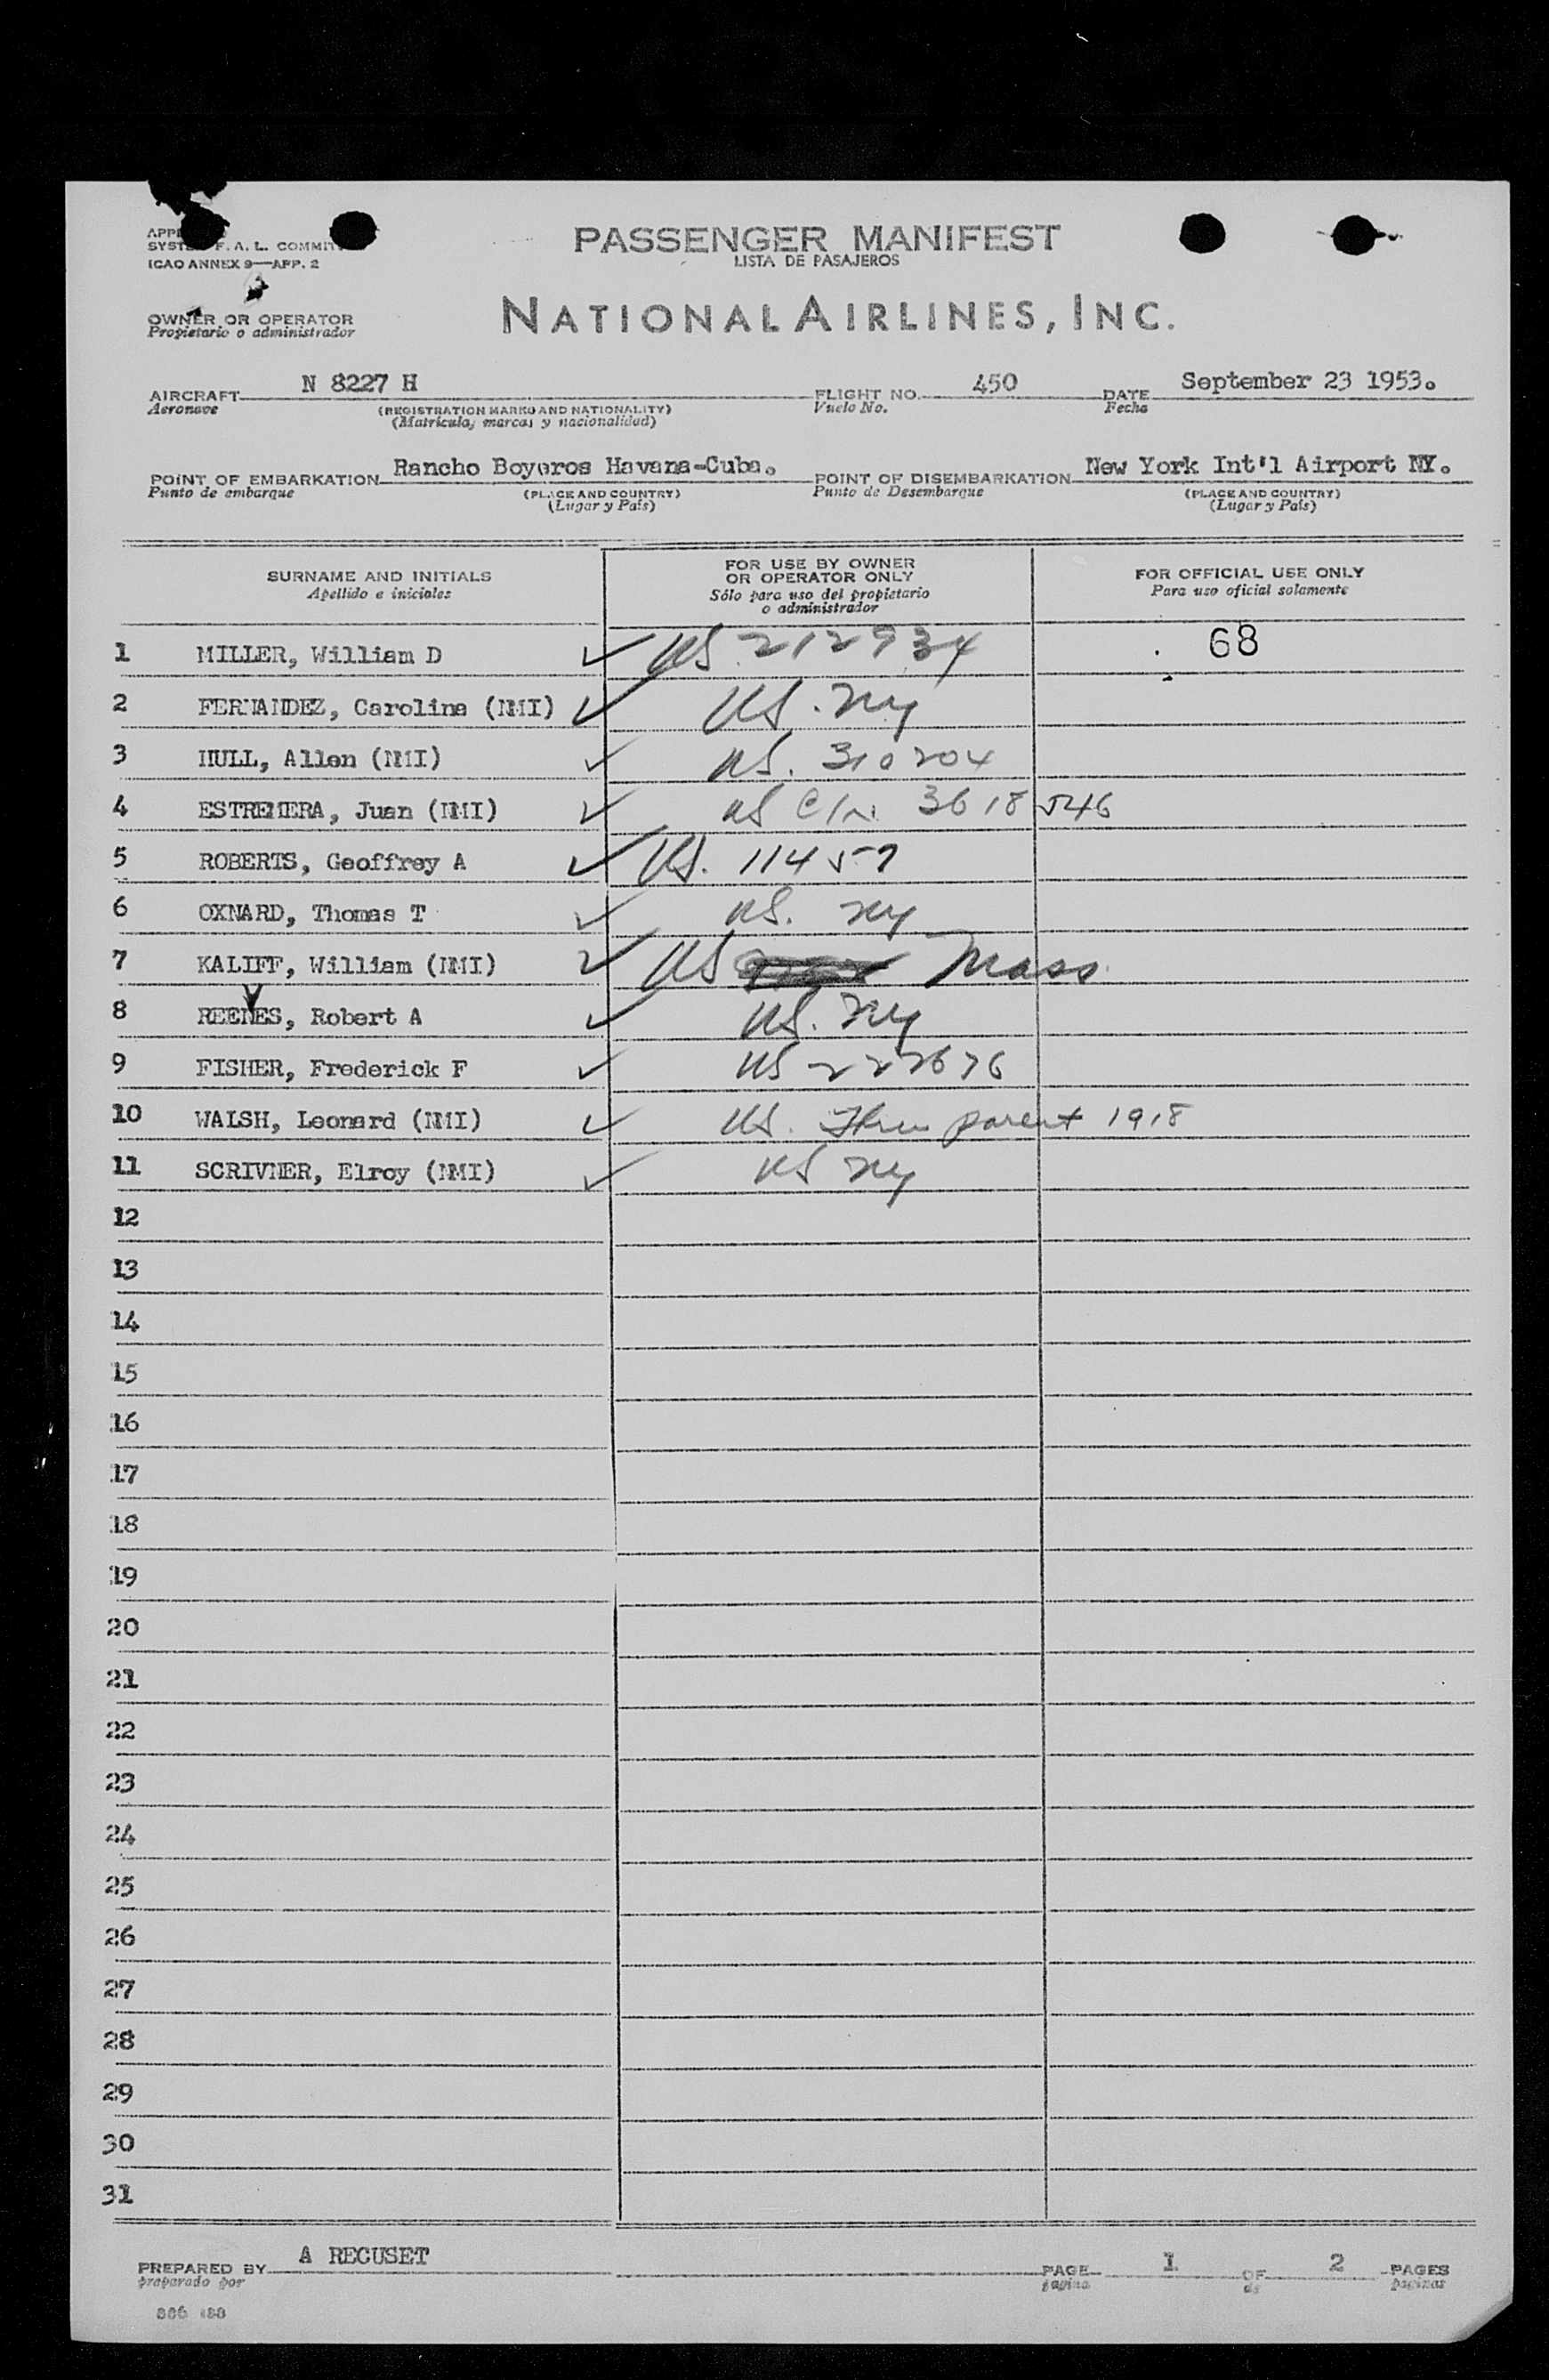 SYST F. A. L. COMMIT
ICAO ANNEX 9—APP. 2
PASSENGER MANIFEST
LISTA DE PASAJEROS
OWNER OR OPERATOR
Propietario o administrador
NATIONAL AIRLINES, INC.
AIRCRAFT N 8227 H FLIGHT NO. 450 DATE September 23 1953.
Aeronave (REGISTRATION MARKS AND NATIONALITY) Vuelo No. Fecha
(Matricula, marcas y nacionalidad)
POINT OF EMBARKATION Rancho Boyeros Havana-Cuba. POINT OF DISEMBARKATION New York Int'l Airport NY.
Punto de embarque (PLACE AND COUNTRY) Punto de Desembarque (PLACE AND COUNTRY)
(Lugar y País) (Lugar y País)
SURNAME AND INITIALS
Apellido e iniciales
FOR USE BY OWNER
OR OPERATOR ONLY
Sólo para uso del propietario
o administrador
FOR OFFICIAL USE ONLY
Para uso oficial solamente
1 MILLER, William D US. 212934 68
2 FERNANDEZ, Carolina (NMI) US. NY
3 HULL, Allen (NMI) US. 310204
4 ESTREMERA, Juan (NMI) US C/N. 3618546
5 ROBERTS, Geoffrey A US. 11457
6 OXNARD, Thomas T US. NY
7 KALIFF, William (NMI) US Mass
8 REENES, Robert A US. NY
V
9 FISHER, Frederick F US 222676
10 WALSH, Leonard (NMI) US. Thru parent 1918
11 SCRIVNER, Elroy (NMI) US NY
12
13
14
15
16
17
18
19
20
21
22
23
24
25
26
27
28
29
30
31
PREPARED BY A RECUSET PAGE 1 OF 2 PAGES
preparado por pagina de paginas